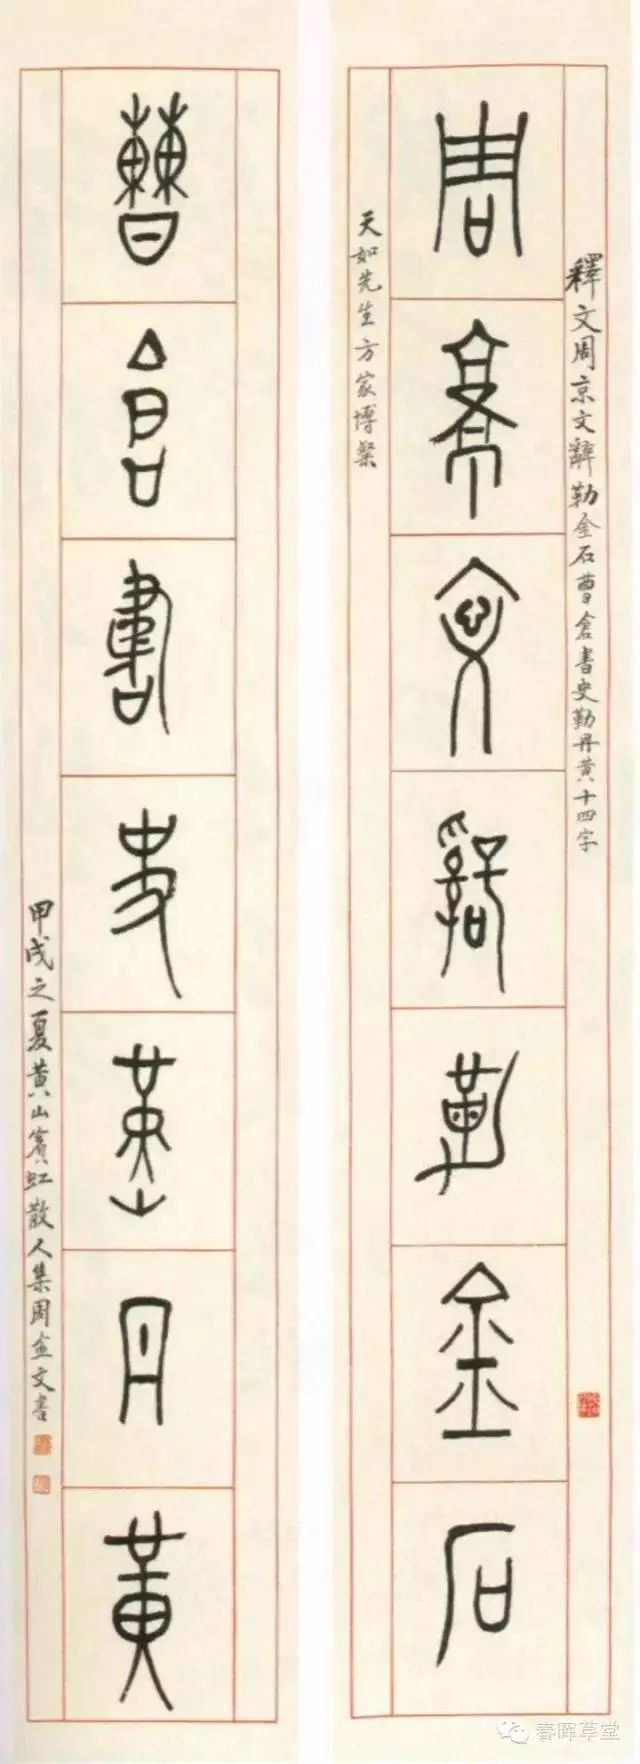 釋文周京文辭勒金石曹倉書史勤丹黃十四字
周京文辭勒金石
天如先生方家博粲
曹倉書史堇丹黃
甲戌之夏黃山賓虹散人集周金文書
春晖草堂